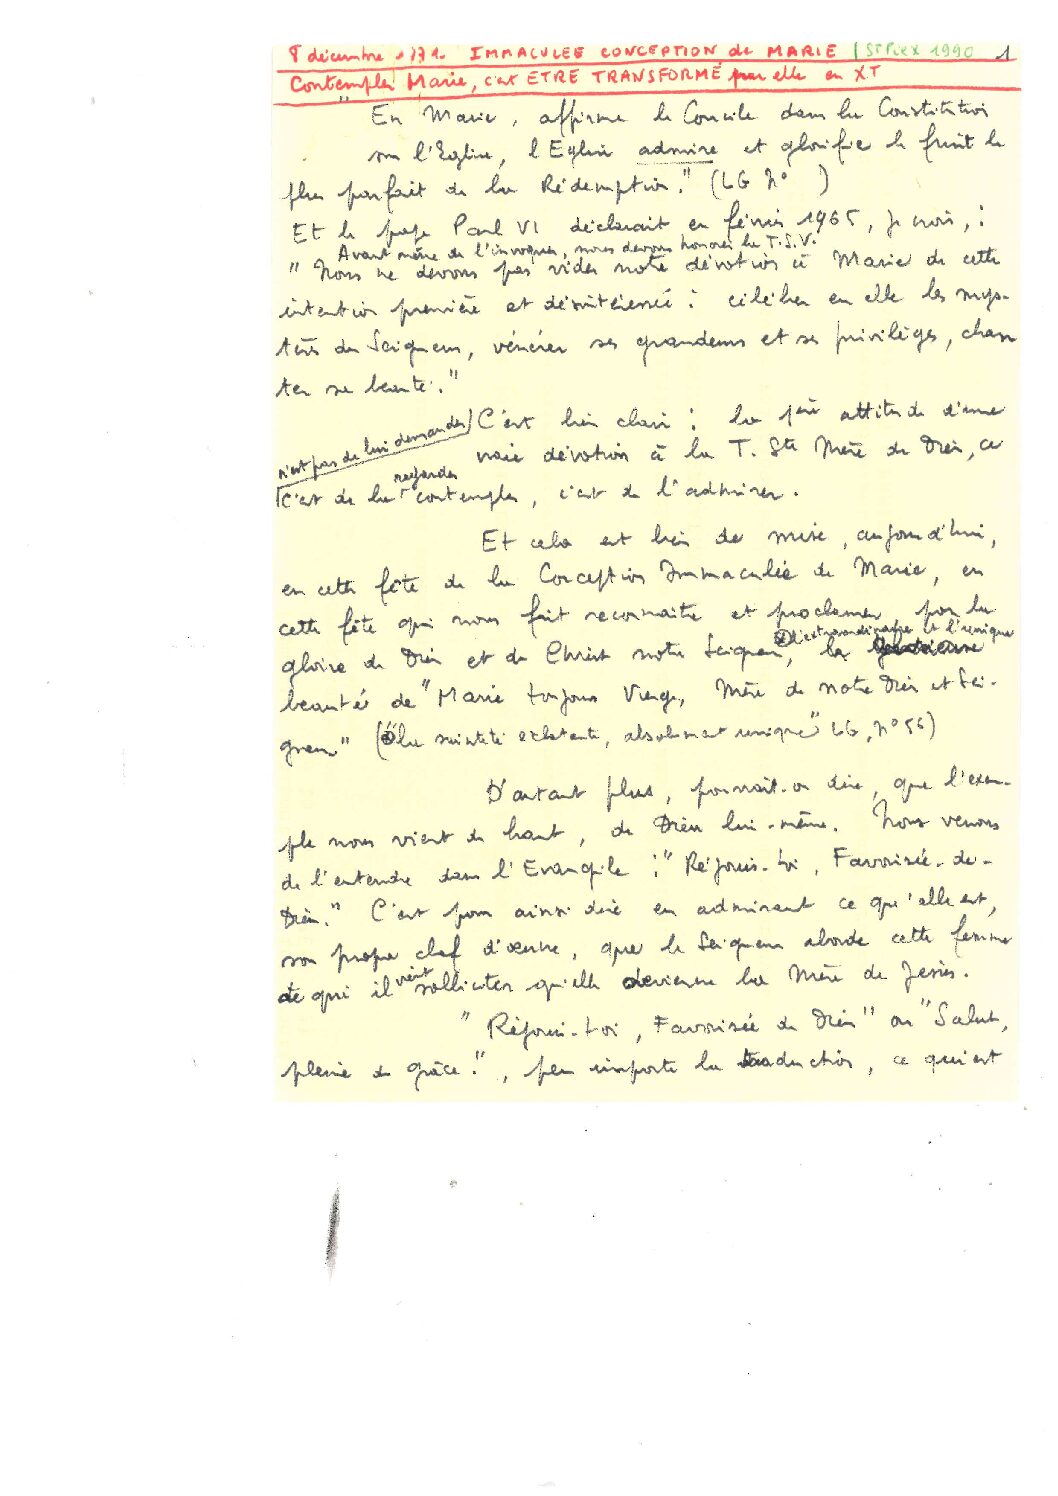 8 décembre 1971. IMMACULEE CONCEPTION de MARIE | St PIEX 1990 1
Contempler Marie, c'est ETRE TRANSFORMÉ par elle en XT
"En Marie, affirme le Concile dans la Constitution
sur l'Eglise, l'Eglise admire et glorifie le fruit le
plus parfait de la Rédemption." (LG N° )
Et le pape Paul VI déclarait en février 1965, je crois, :
Avant même de l'invoquer, nous devons honorer la T.S.V.
"Nous ne devons pas vider notre dévotion à Marie de cette
intention première et désintéressée : célébrer en elle les mys-
tères du Seigneur, vénérer ses grandeurs et ses privilèges, chan-
ter sa beauté."
C'est bien clair : la 1ère attitude d'une
vraie dévotion à la T. Ste Mère de Dieu, ce
n'est pas de lui demander
c'est de la regarder contempler, c'est de l'admirer.
Et cela est bien de mise, aujourd'hui,
en cette fête de la Conception Immaculée de Marie, en
cette fête qui nous fait reconnaître et proclamer, pour la
gloire de Dieu et du Christ notre Seigneur, la
l'extraordinaire et l'unique
beauté de "Marie toujours Vierge, Mère de notre Dieu et Sei-
gneur" ("la sainteté éclatante, absolument unique" LG, N° 56)
D'autant plus, pourrait-on dire, que l'exem-
ple nous vient de haut, de Dieu lui-même. Nous venons
de l'entendre dans l'Evangile : "Réjouis-toi, Favorisée-de-
Dieu." C'est pour ainsi dire en admirant ce qu'elle est,
son propre chef d'œuvre, que le Seigneur aborde cette femme
de qui il vient solliciter qu'elle devienne la Mère de Jésus.
"Réjouis-toi, Favorisée de Dieu" ou "Salut,
pleine de grâce!", peu importe la traduction, ce qui est